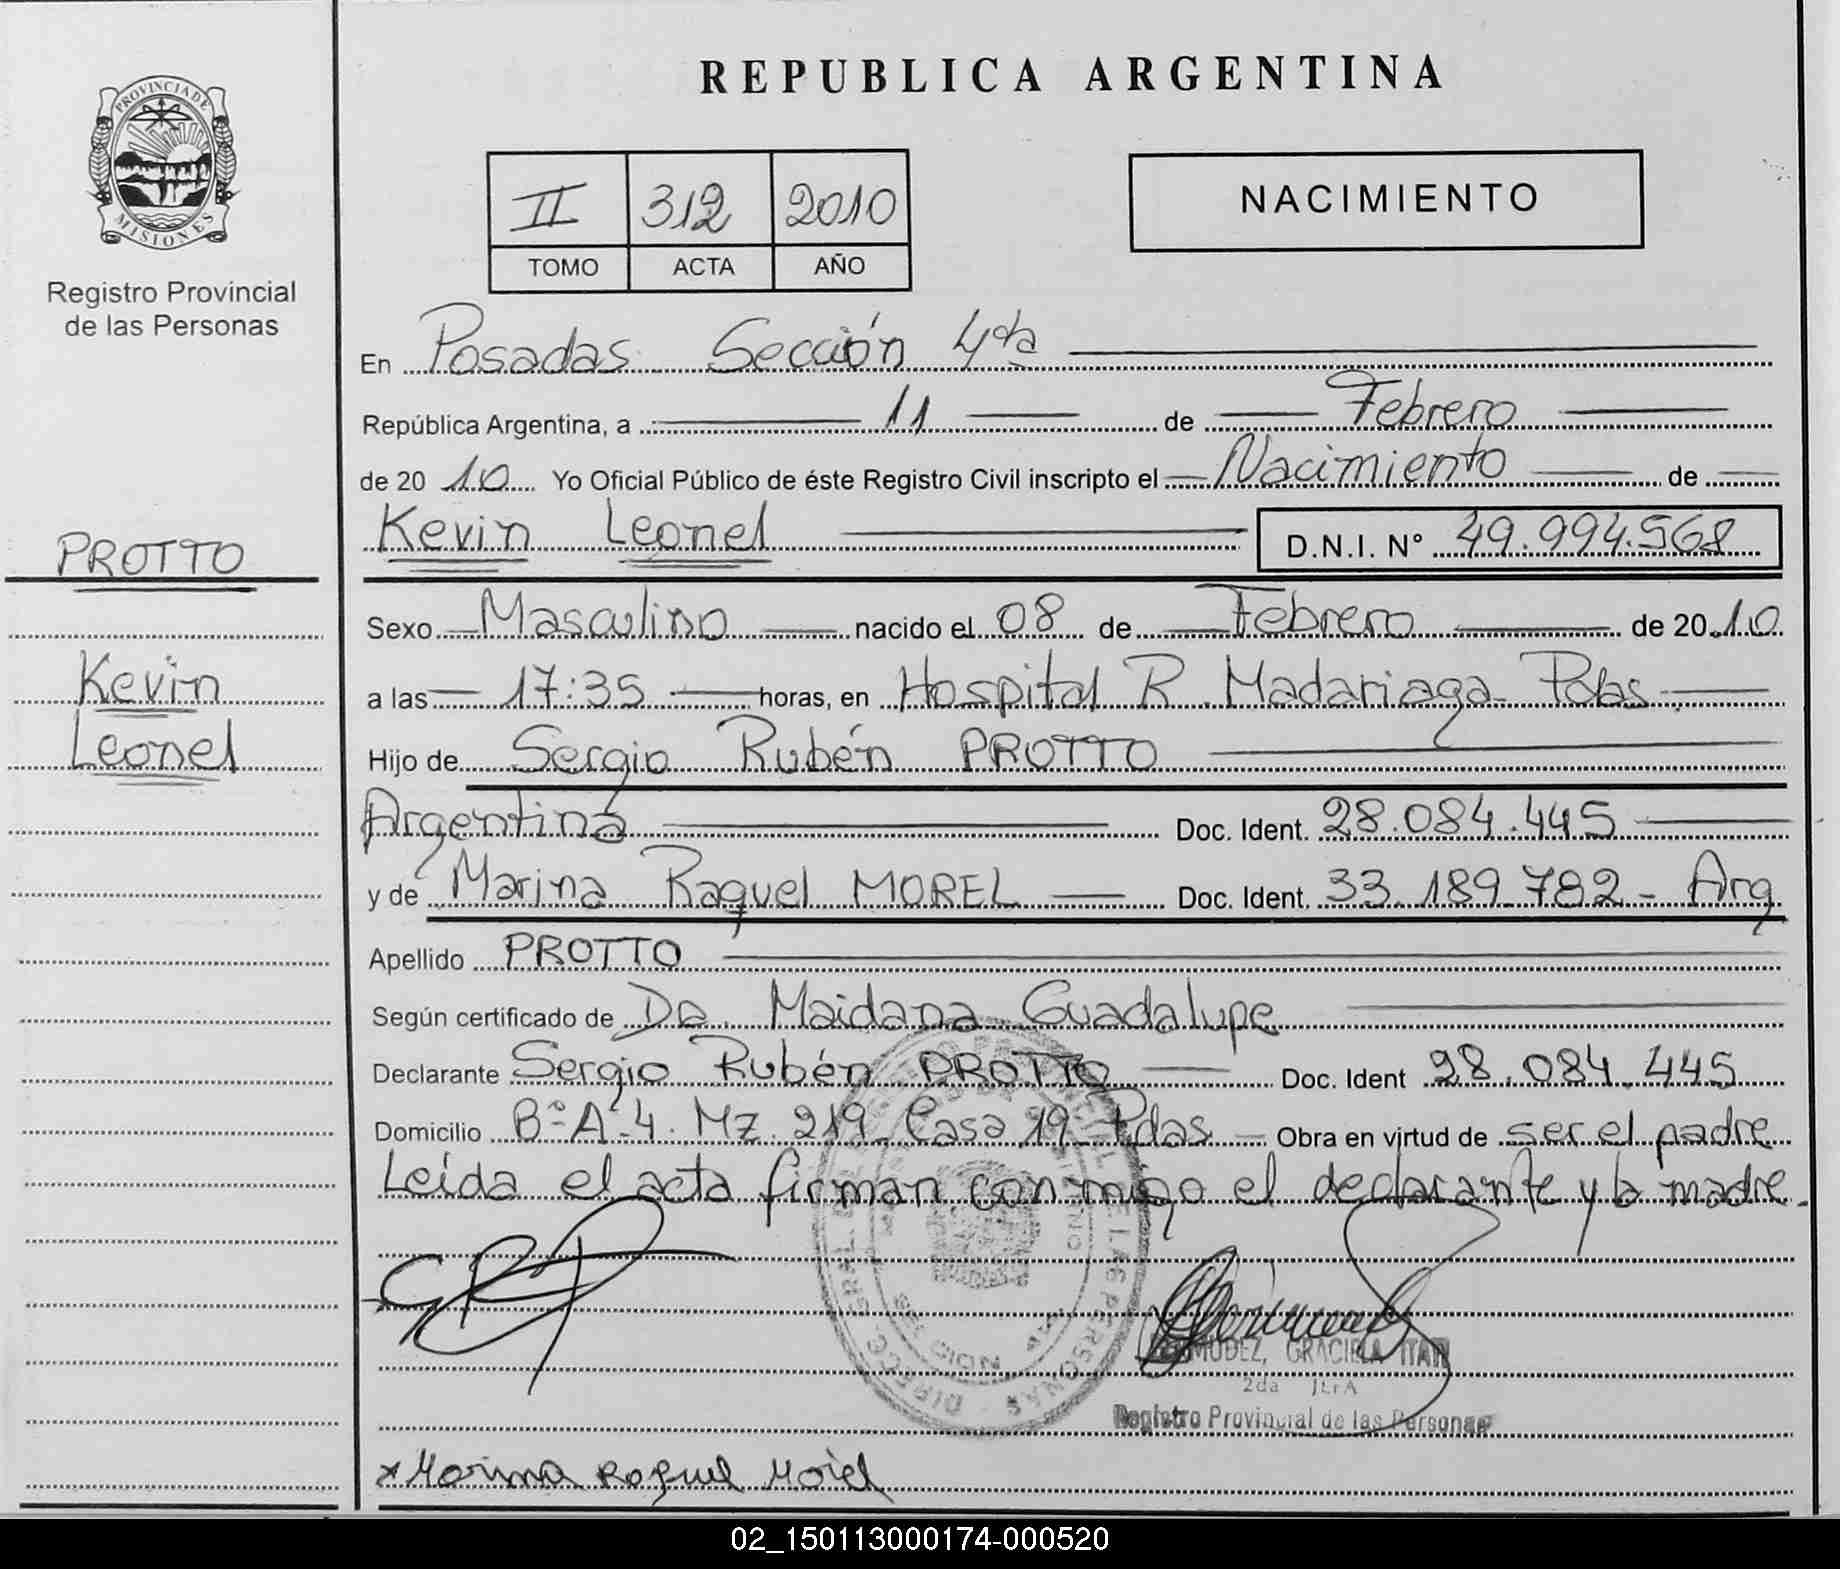 REPUBLICA ARGENTINA
PROVINCIA DE
MISIONES
Registro Provincial
de las Personas
II 312 2010
TOMO ACTA AÑO
NACIMIENTO
PROTTO
Kevin
Leonel
En Posadas Sección 4ta
República Argentina, a 11 de Febrero
de 2010 Yo Oficial Público de éste Registro Civil inscripto el Nacimiento de
Kevin Leonel D.N.I. Nº 49.994.568
Sexo Masculino nacido el 08 de Febrero de 2010
a las 17:35 horas, en Hospital R. Madariaga - Pdas.
Hijo de Sergio Rubén PROTTO
Argentina Doc. Ident. 28.084.445
y de Marina Raquel MOREL Doc. Ident. 33.189.782 - Arg
Apellido PROTTO
Según certificado de Da. Maidana Guadalupe
Declarante Sergio Rubén PROTTO Doc. Ident 28.084.445
Domicilio Bº A-4. Mz. 219 Casa 19 - Pdas Obra en virtud de ser el padre
Leída el acta firman conmigo el declarante y la madre.
GRACIELA ITATI
2da JEFA
Registro Provincial de las Personas
x Marina Raquel Morel
02_150113000174-000520